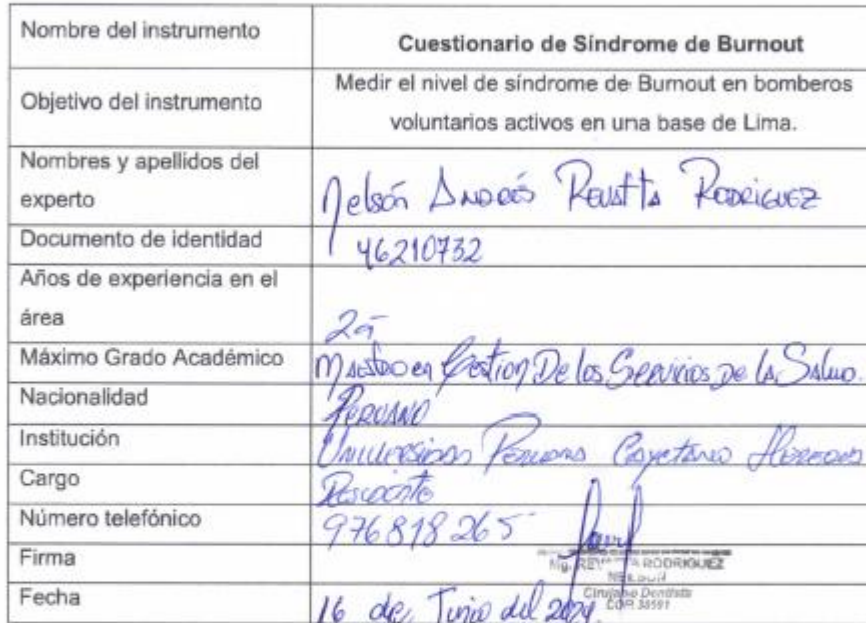 Nombre del instrumento
Cuestionario de Síndrome de Burnout
Objetivo del instrumento
Medir el nivel de síndrome de Burnout en bomberos
voluntarios activos en una base de Lima.
Nombres y apellidos del
experto
Nelson Andrés Revatta Rodriguez
Documento de identidad
46210732
Años de experiencia en el
área
Máximo Grado Académico
Maestro en Gestion De los Servicios De la Salud.
Nacionalidad
Peruano
Institución
Universidad Peruana Cayetano Heredia
Cargo
Docente
Número telefónico
976818265
Firma
Mg. REVATTA RODRIGUEZ
NELSON
Cirujano Dentista
COP. 38591
Fecha
16 de Junio del 2024.